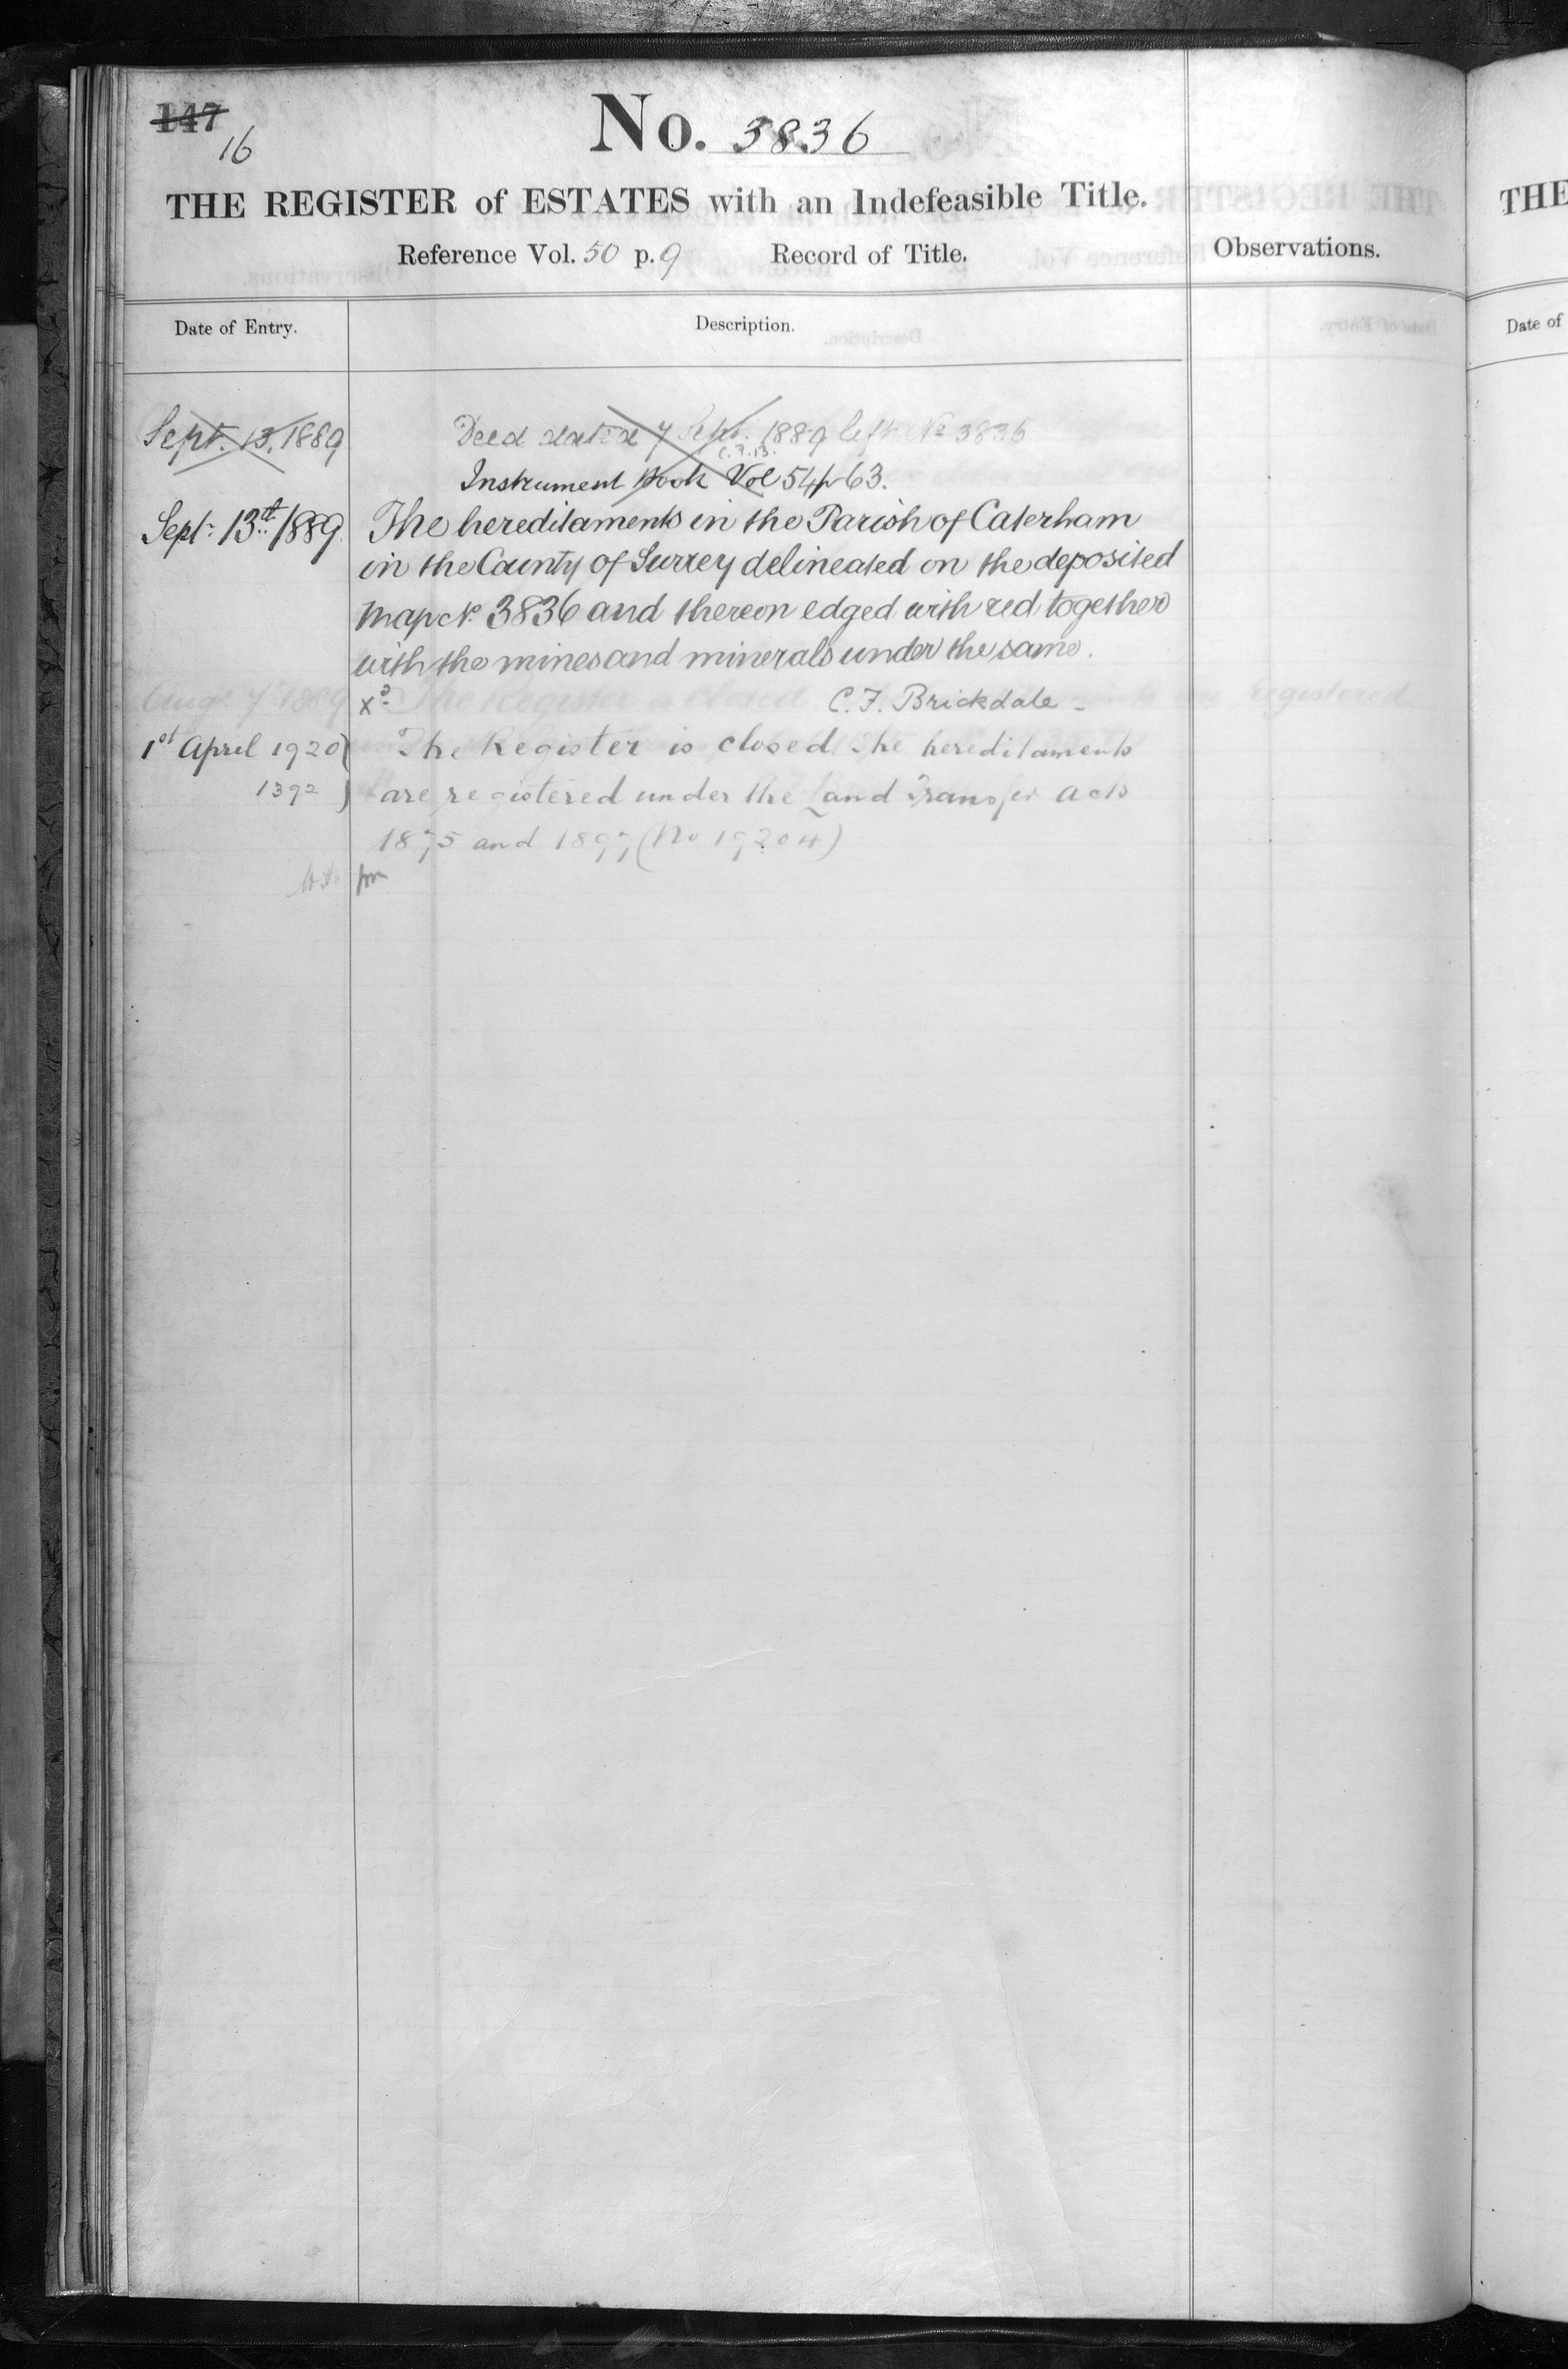 147
16
No. 3836
THE REGISTER of ESTATES with an Indefeasible Title.
Reference Vol. 50 p. 9 Record of Title.
Observations.
Date of Entry.
Description.
Sept. 13. 1889 Deed dated 7 Sept. 1889 left No 3836
C.F.B.
Instrument Book Vol 54 p 63.
Sept: 13th 1889. The hereditaments in the Parish of Caterham
in the County of Surrey delineated on the deposited
Map No. 3836 and thereon edged with red together
with the mines and minerals under the same.
xd C. F. Brickdale -
1st April 1920 The Register is closed The hereditaments
1392 are registered under the Land Transfer Acts
1875 and 1897 (No 19204)
THE
Date of